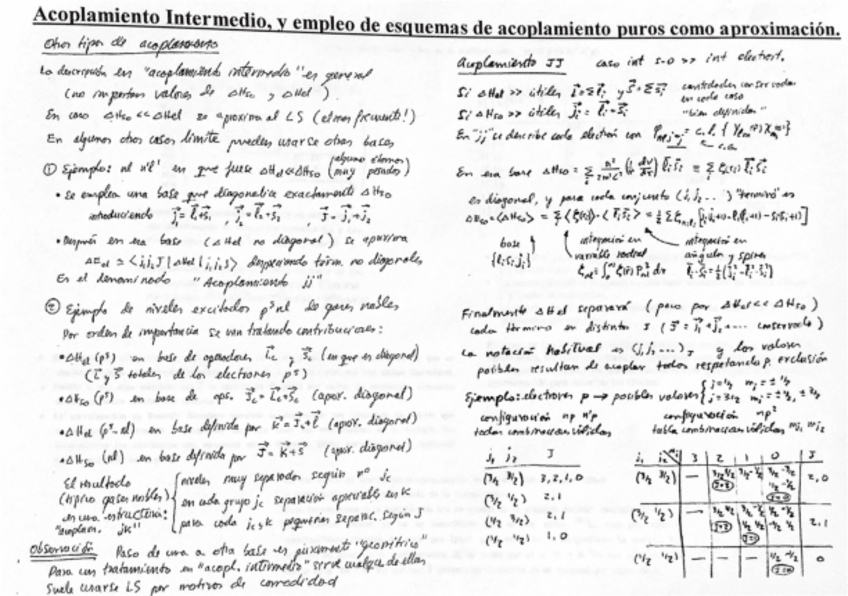 Acoplamiento Intermedio, y empleo de esquemas de acoplamiento puros como aproximación.
Otros tipos de acoplamiento
La descripción en "acoplamiento intermedio" es general
(no importan valores de ΔHso, ΔHel).
En caso ΔHso << ΔHel se aproxima al LS (el más frecuente!)
En algunos otros casos límite pueden usarse otras bases
① Ejemplo: nl n'l' en que fuese ΔHel << ΔHso (algunos átomos muy pesados)
• Se emplea una base que diagonalice exactamente ΔHso
introduciendo j₁ = l₁+s₁, j₂ = l₂+s₂ J = j₁+j₂
• Después en esa base (ΔHel no diagonal) se aproxima
despreciando térm. no diagonales
Es el denominado "Acoplamiento jj"
② Ejemplo de niveles excitados p⁵nl de gases nobles
Por orden de importancia se van tratando contribuciones:
• ΔHel (p⁵) en base de operadores Lc y Sc (en que es diagonal)
(L y S totales de los electrones p⁵)
• ΔHso (p⁵) en base de ops. Jc = Lc+Sc (aprox. diagonal)
• ΔHel (p⁵-nl) en base definida por K = Jc+l (aprox. diagonal)
• ΔHso (nl) en base definida por J = K+s (aprox. diagonal)
El resultado
(típico gases nobles)
es una estructura:
"acoplam. jK"
niveles muy separados según nº jc
en cada grupo jc separación apreciable en K
para cada jc,K pequeñas separac. según J
Observación Paso de una a otra base es puramente "geométrico"
Para un tratamiento en "acopl. intermedio" sirve cualquiera de ellas
Suele usarse LS por motivos de comodidad
Acoplamiento JJ caso int s-o >> int electrost.
Si ΔHel >> útiles L = Σ lᵢ y S = Σ sᵢ
Si ΔHso >> útiles jᵢ = lᵢ+sᵢ
cantidades conservadas
en cada caso
"bien definidas"
En "jj" se describe cada electrón con
En esa base ΔHso =
es diagonal, y para cada conjunto (j₁ j₂ ...) "término" es
base
{lᵢ sᵢ jᵢ}
integración en
variable radial
integración en
angular y spines
Finalmente ΔHel separará (poco por ΔHel << ΔHso)
cada término en distintos J (J = j₁+j₂+... conservado)
La notación habitual es (j₁ j₂ ...)J y los valores
posibles resultan de acoplar todos respetando p. exclusión
Ejemplos: electrones p → posibles valores { j=1/2 mj = ± 1/2
j=3/2 mj = ± 1/2, ± 3/2
configuración np n'p
todas combinaciones válidas
j₁ j₂ J
(3/2 3/2) 3, 2, 1, 0
(3/2 1/2) 2, 1
(1/2 3/2) 2, 1
(1/2 1/2) 1, 0
configuración np²
tabla combinaciones válidas m₁, m₂
j₁ j₂ 3 2 1 0 J
(3/2 3/2) — 2, 0
(3/2 1/2) — 2, 1
(1/2 1/2) — — — 0